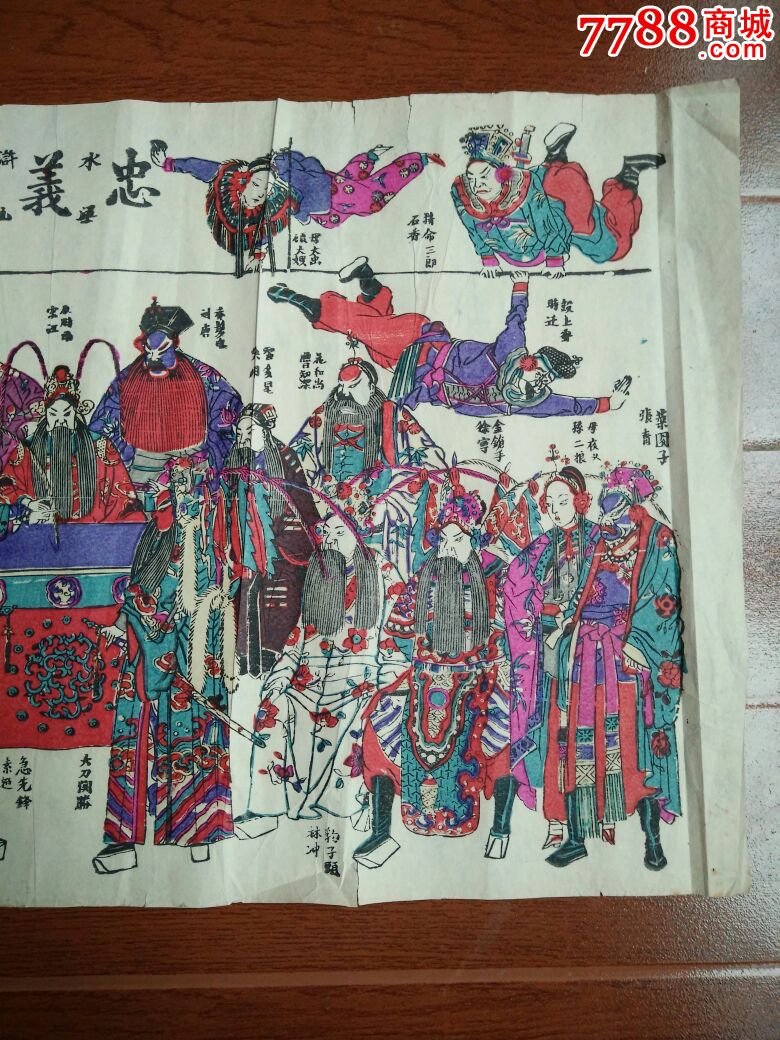 7788商城
.com
忠義
水
滸
母大虫
顧大嫂
拚命三郎
石秀
鼓上蚤
時迁
宋江
赤髮鬼
刘唐
智多星
吴用
花和尚
魯知深
金鎗手
徐寧
母夜叉
孫二娘
菜園子
張青
大刀関勝
急先鋒
索超
豹子頭
林冲